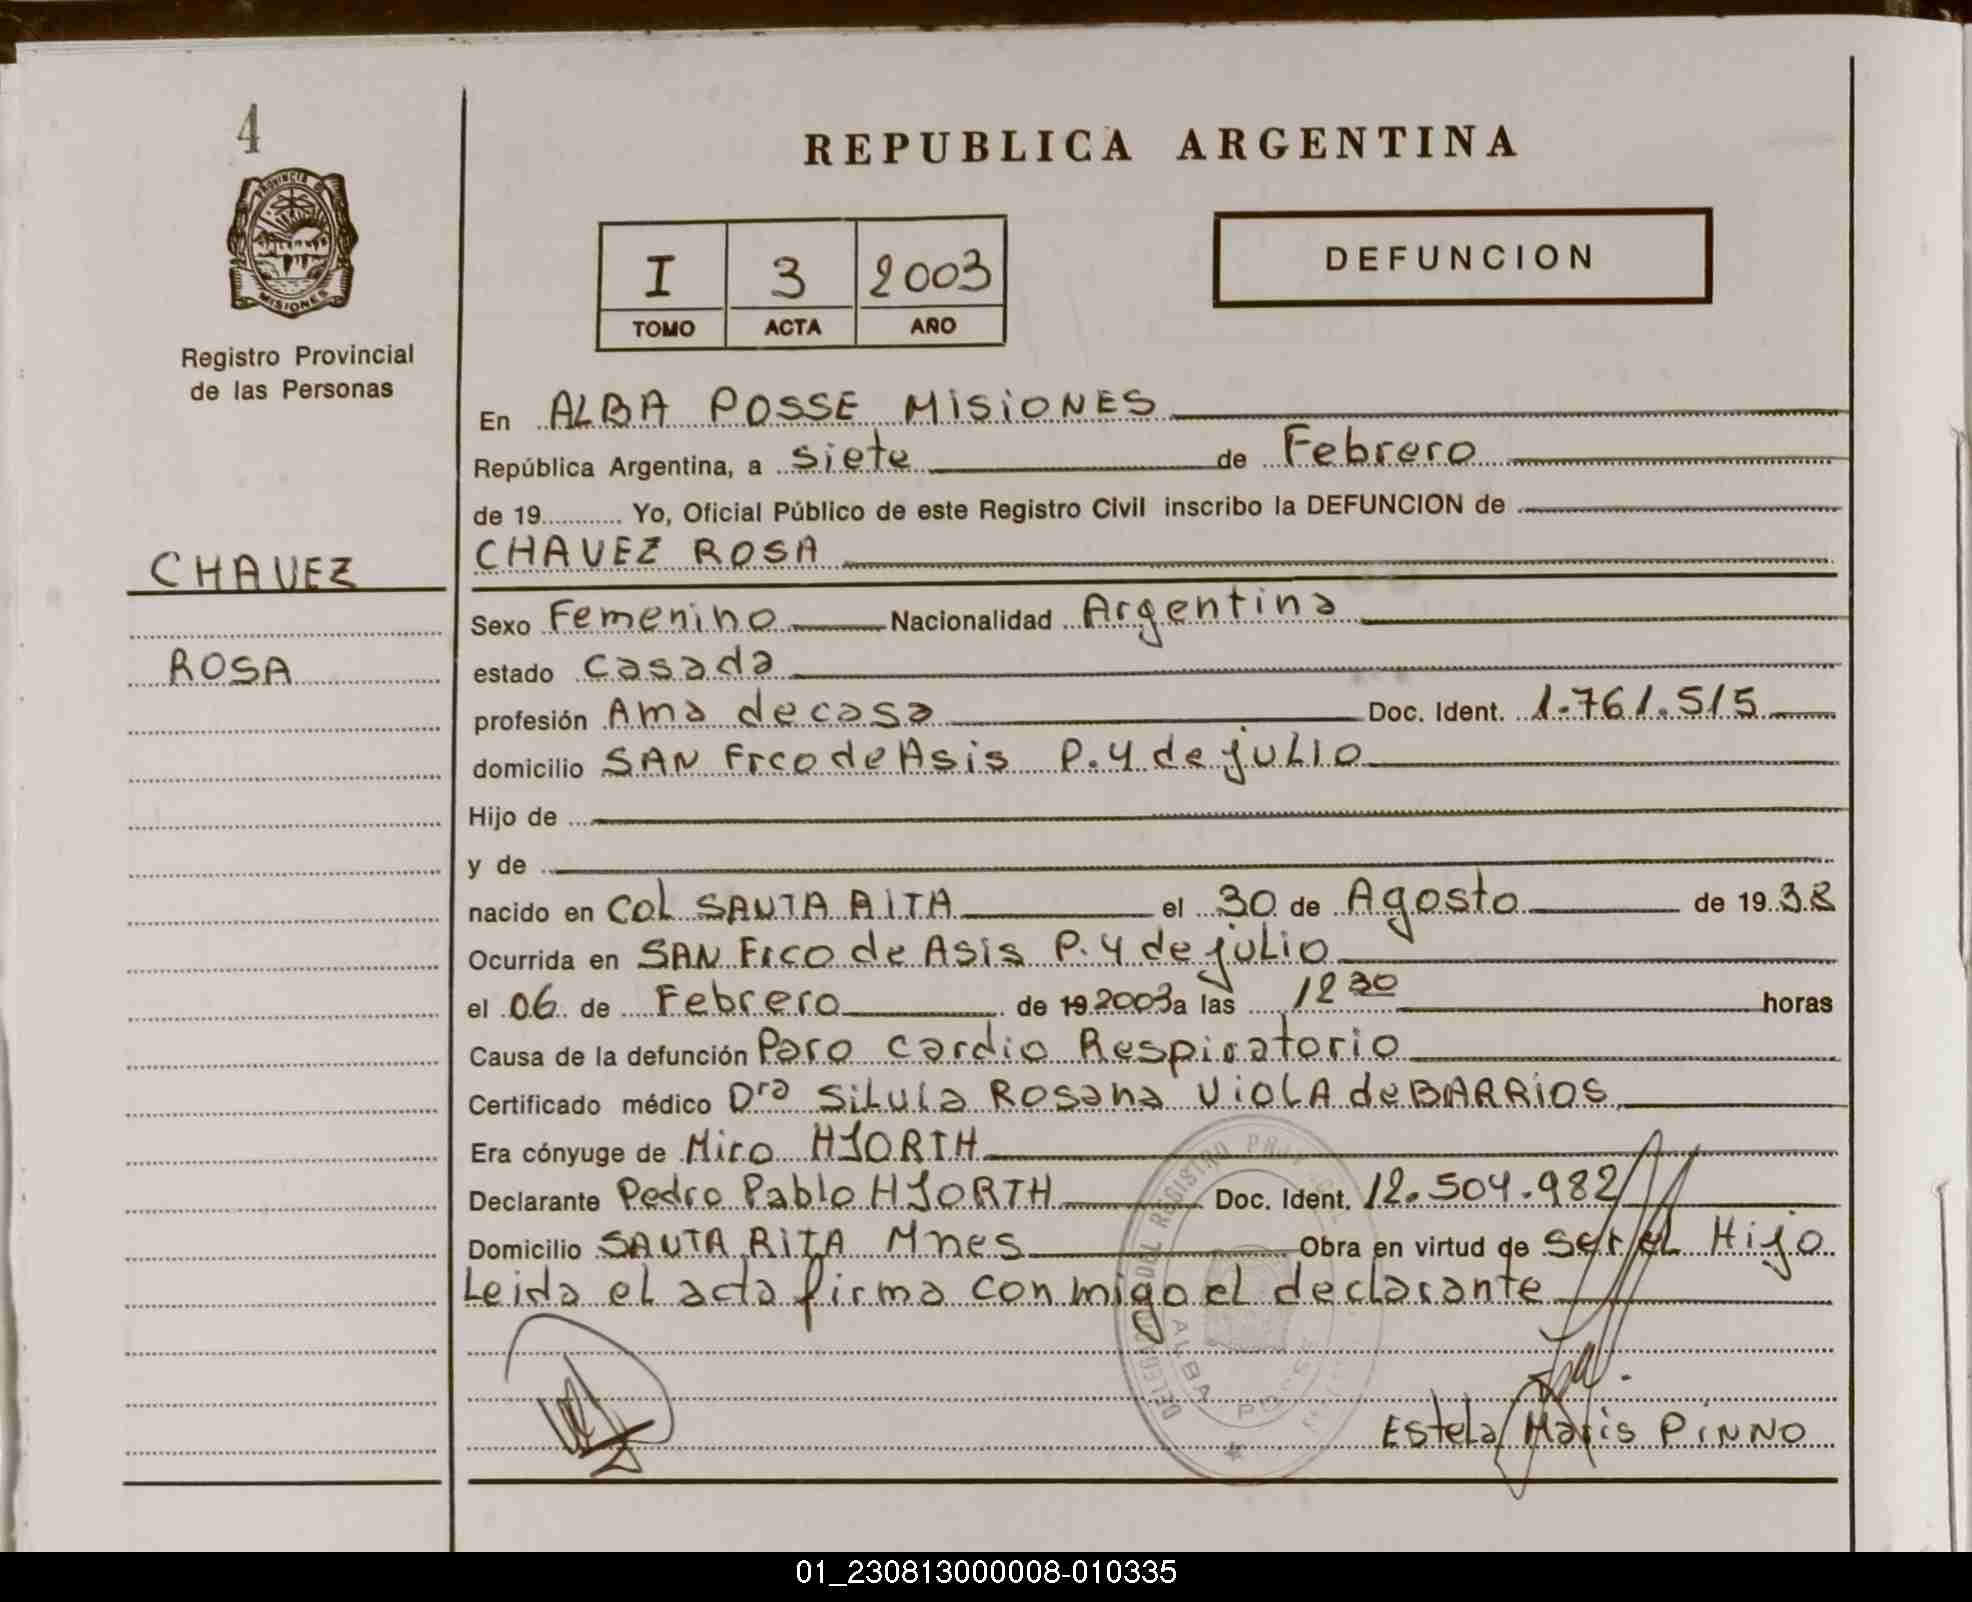 4
PROVINCIA DE
MISIONES
Registro Provincial
de las Personas
CHAVEZ
ROSA
REPUBLICA ARGENTINA
I 3 2003
TOMO ACTA AÑO
DEFUNCION
En ALBA POSSE MISIONES
República Argentina, a siete de Febrero
de 19 Yo, Oficial Público de este Registro Civil inscribo la DEFUNCION de
CHAVEZ ROSA
Sexo Femenino Nacionalidad Argentina
estado casada
profesión Ama de casa Doc. Ident. 1.761.515
domicilio SAN Frco de Asis P. 4 de julio
Hijo de
y de
nacido en COL SANTA RITA el 30 de Agosto de 19 38
Ocurrida en SAN Frco de Asis P. 4 de julio
el 06 de Febrero de 19 2003 a las 12 30 horas
Causa de la defunción Paro cardio Respiratorio
Certificado médico Dra Silvia Rosana Viola de BARRIOS
Era cónyuge de Mico HJORTH
Declarante Pedro Pablo HJORTH Doc. Ident. 12.504.982
Domicilio SANTA RITA Mnes Obra en virtud de ser el Hijo
Leida el acta firma conmigo el declarante
REGISTRO
ALBA POSSE
Estela Maris PINNO
01_230813000008-010335